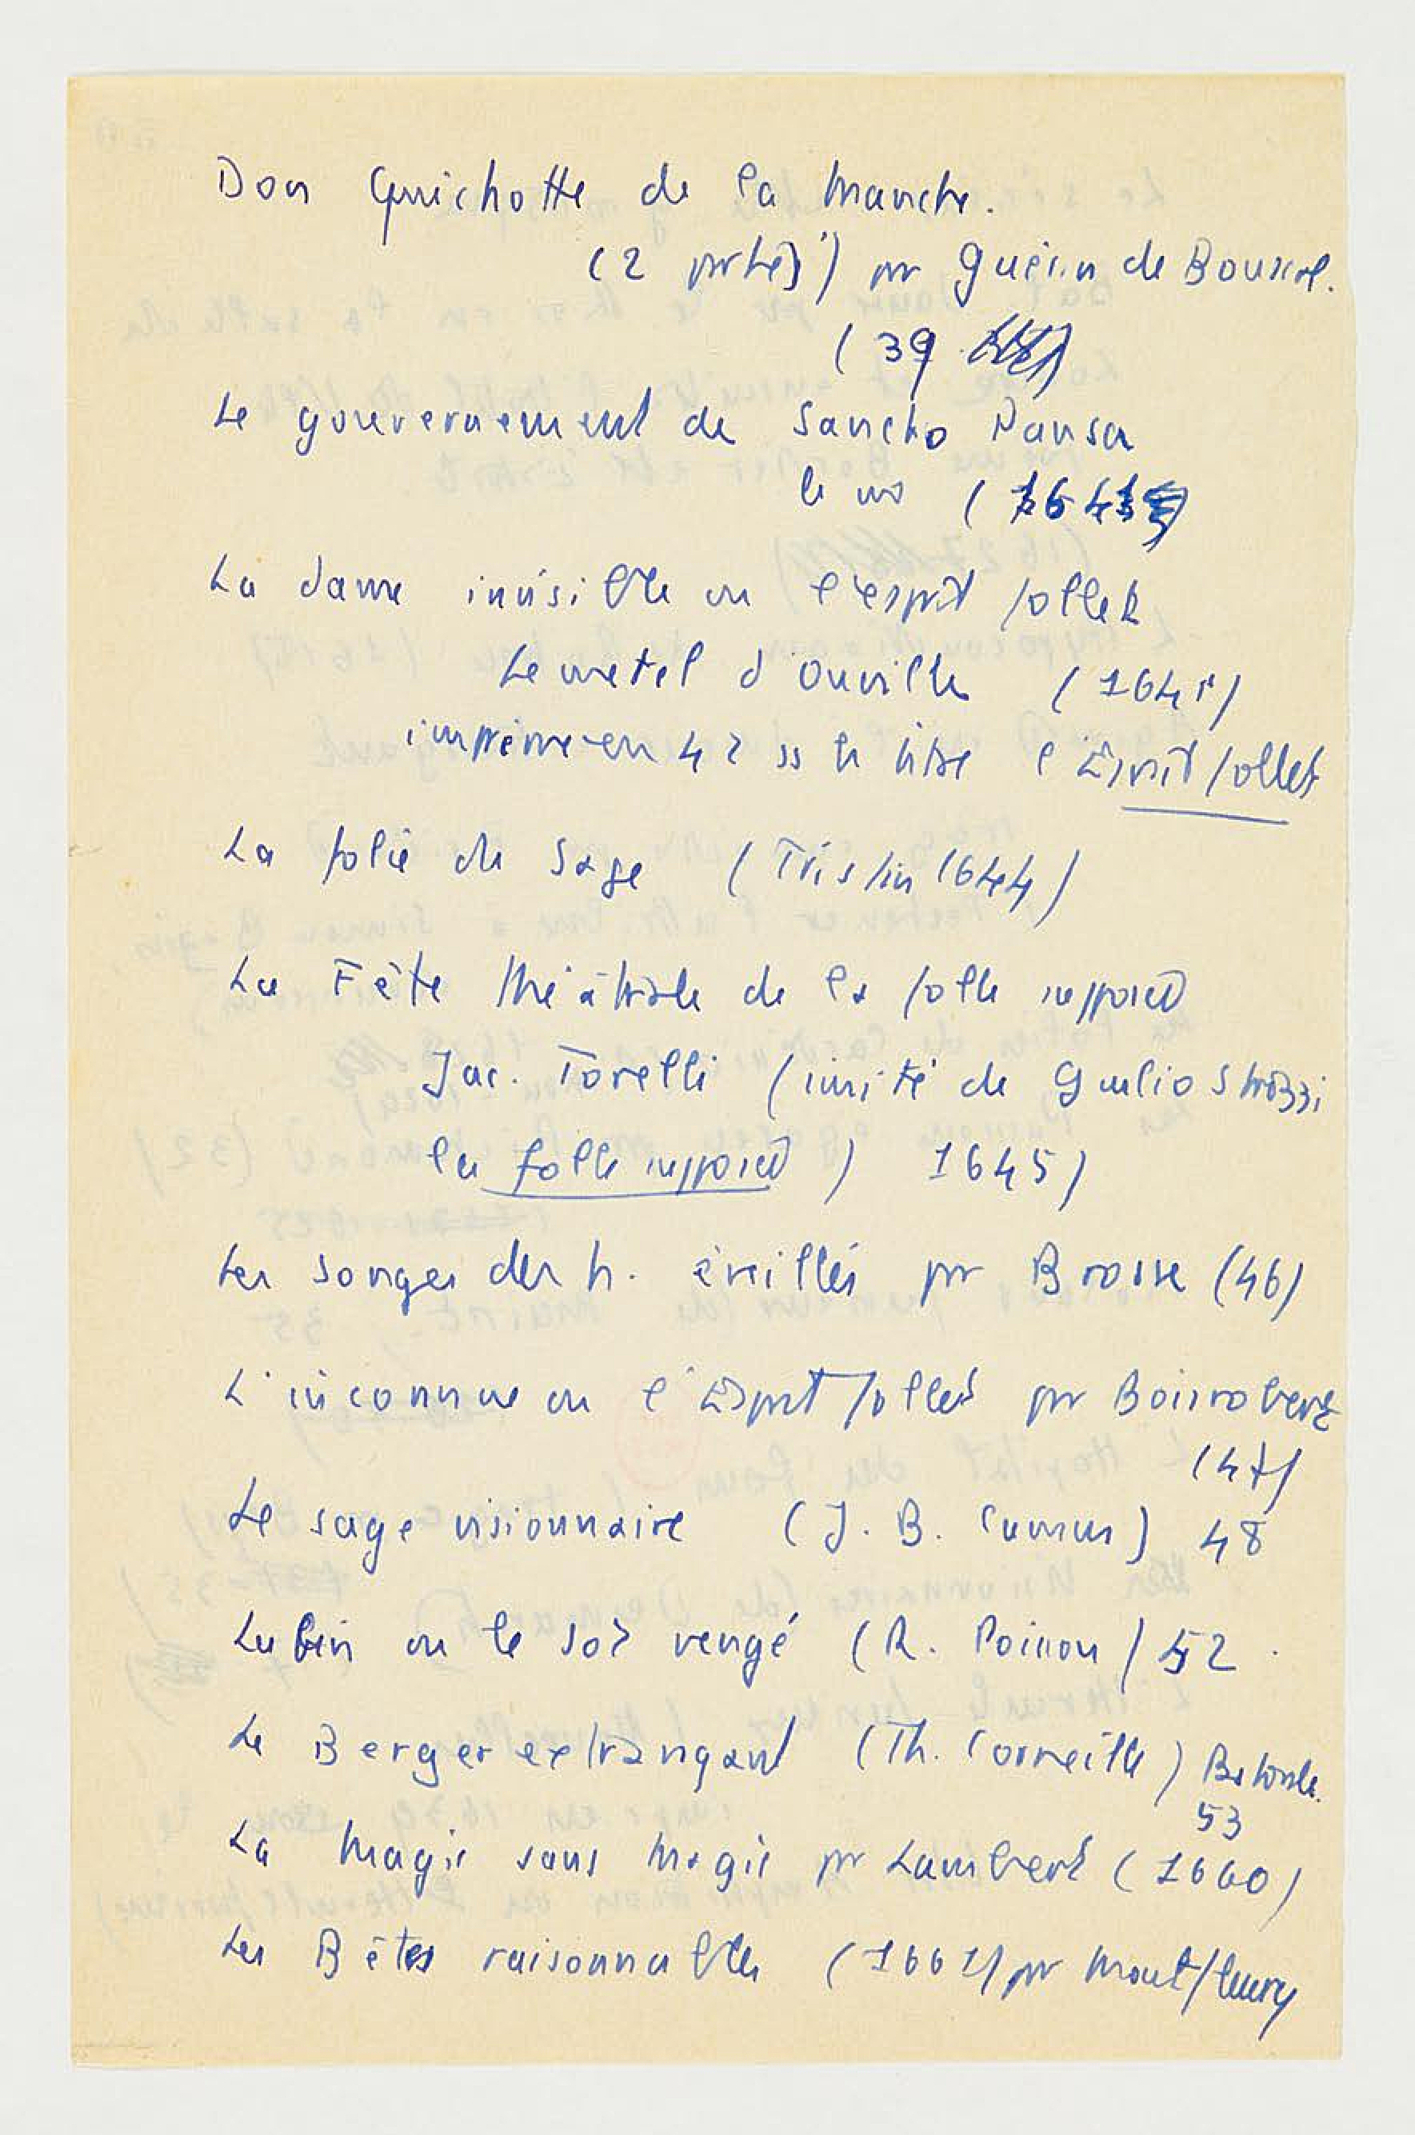 Don Quichotte de la Manche.
(2 parties) par Guérin de Bouscal.
(39
Le gouvernement de Sancho Pansa
le m (1641
La dame invisible ou l'esprit follet
Le metel d'Ouville (1641)
imprimé en 42 ss le titre l'Esprit follet
La folie du Sage (Tristan 1644)
La Fête théâtrale de la folle supposée
Jac. Torelli (imité de Giulio Strozzi
la folle supposée) 1645)
Les songes des h. éveillés par Brosse (46)
L'inconnue ou l'Esprit follet par Boisrobert
(47)
Le sage visionnaire (J. B. Camus) 48
Lubin ou le sot vengé (R. Poisson) 52
Le Berger extravagant (Th. Corneille)
53
La Magie sans Magie par Lambert (1660)
Les Bêtes raisonnables (1661) par Montfleury